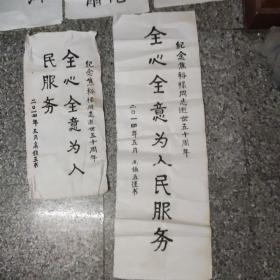 纪念焦裕禄同志逝世五十周年
全心全意为人
民服务
二〇一四年五月
纪念焦裕禄同志逝世五十周年
全心全意为人民服务
二〇一四年五月